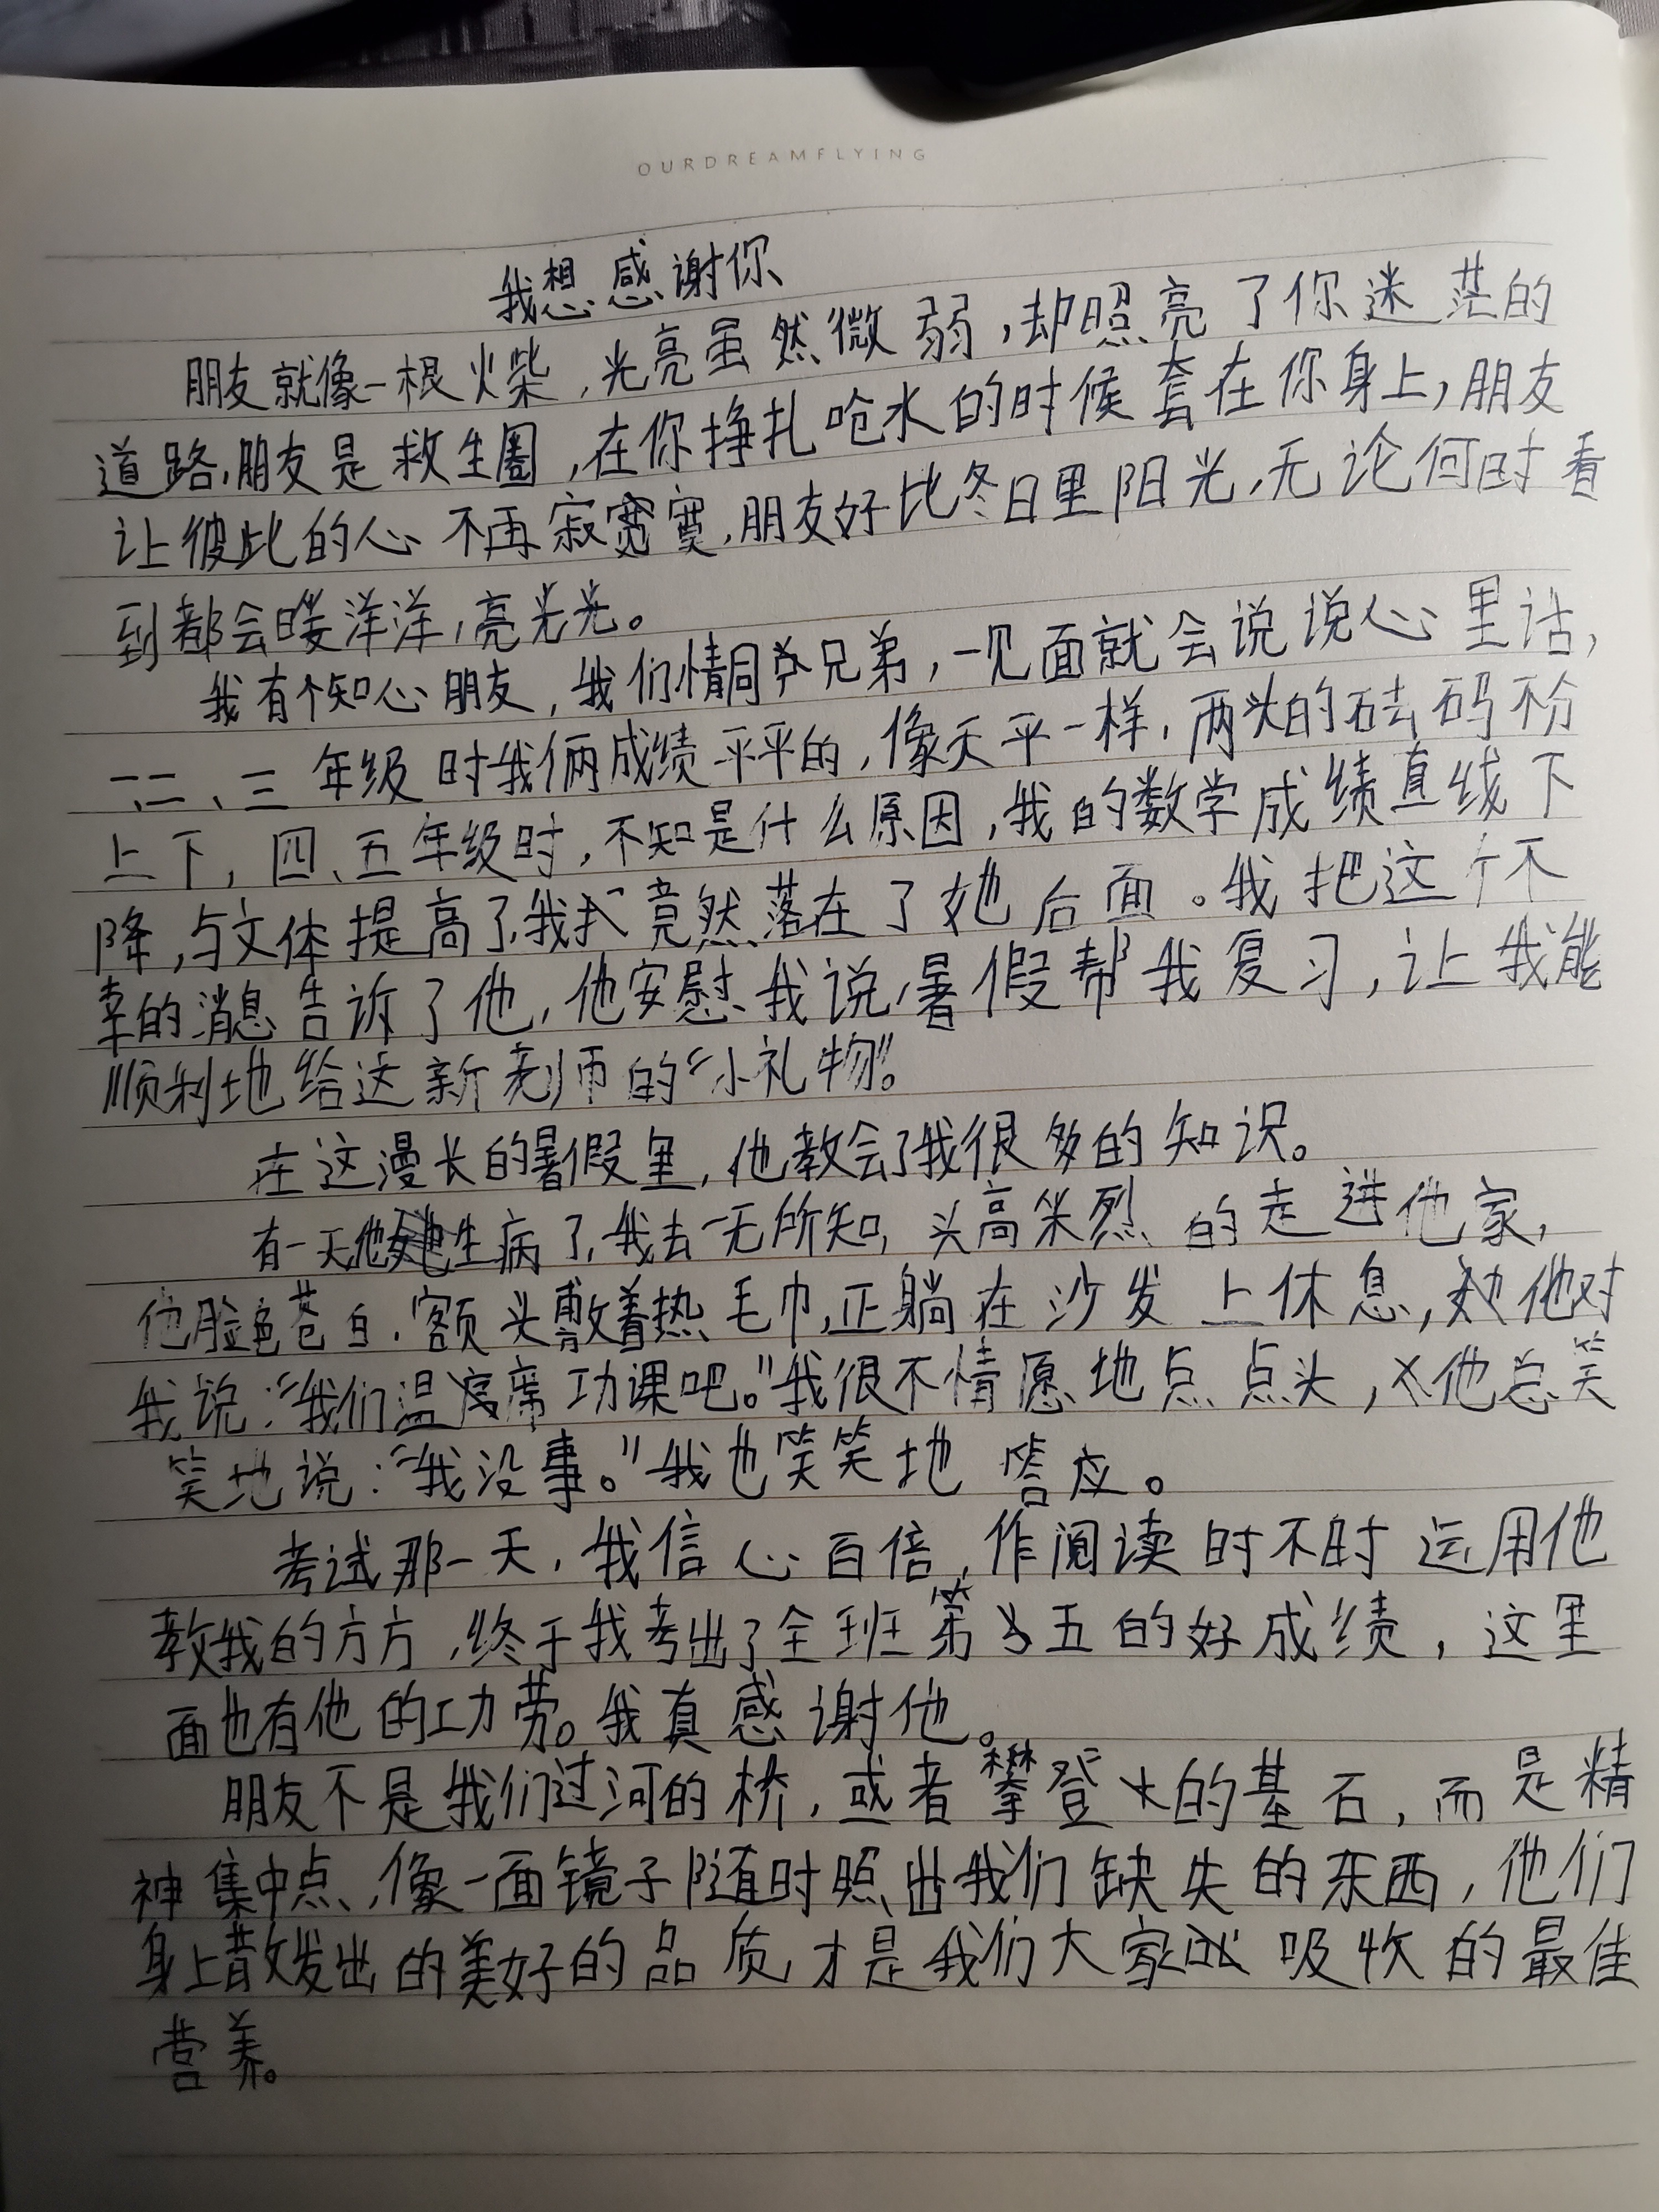 OURDREAMFLYING
我想感谢你
朋友就像一根火柴,光亮虽然微弱,却照亮了你迷茫的
道路,朋友是救生圈,在你挣扎呛水的时候套在你身上,朋友
让彼此的心不再寂寞,朋友好比冬日里阳光,无论何时看
到都会暖洋洋,亮光光。
我有个知心朋友,我们情同兄弟,一见面就会说说心里话,
一、二、三年级时我俩成绩平平的,像天平一样,两头的砝码不分
上下,四、五年级时,不知是什么原因,我的数学成绩直线下
降,与文体提高了,我竟然落在了她后面。我把这个不
幸的消息告诉了他,他安慰我说,暑假帮我复习,让我能
顺利地给这新老师的“小礼物”。
在这漫长的暑假里,他教会了我很多的知识。
有一天他生病了,我去一无所知,头高米烈的走进他家,
他脸色苍白,额头敷着热毛巾,正躺在沙发上休息,他对
我说:“我们温席功课吧。”我很不情愿地点点头,他总笑
笑地说:“我没事。”我也笑笑地答应。
考试那一天,我信心百倍,作阅读时不时运用他
教我的方方,终于我考出了全班第五的好成绩,这里
面也有他的功劳。我真感谢他。
朋友不是我们过河的桥,或者攀登的基石,而是精
神集中点,像一面镜子随时照出我们缺失的东西,他们
身上散发出的美好的品质,才是我们大家吸收的最佳
营养。